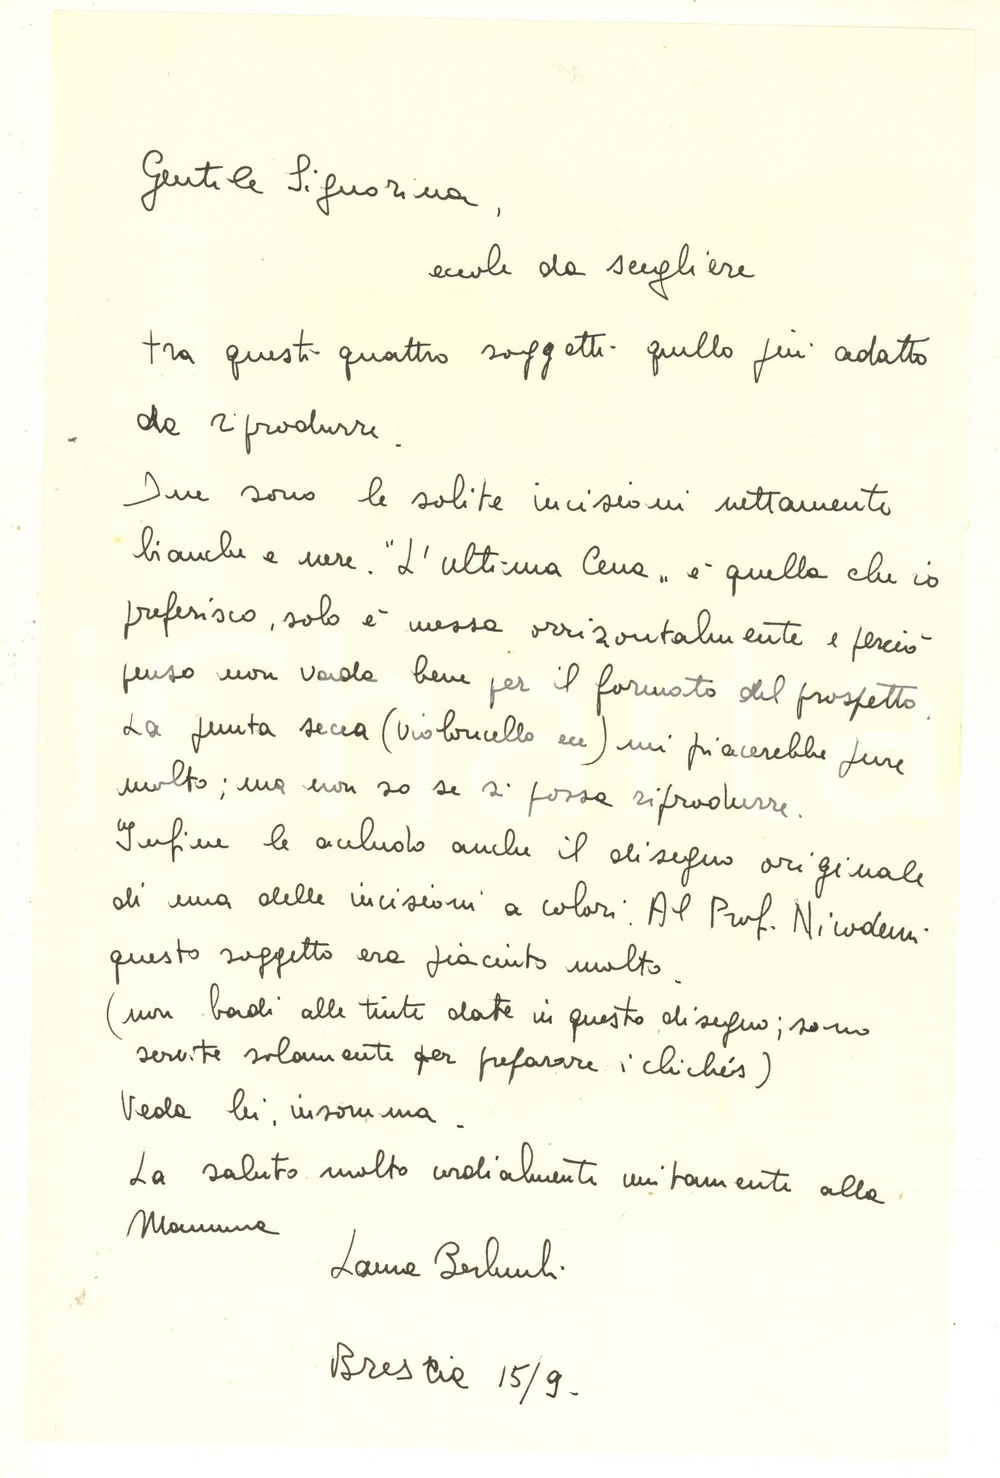 Gentile Signorina,
eccole da scegliere
tra questi quattro soggetti quello più adatto
da riprodurre.
Due sono le solite incisioni nettamente
bianche e nere. "L'ultima Cena„ è quella che io
preferisco, solo è messa orrizontalmente e perciò
penso non vada bene per il formato del prospetto.
La punta secca (violoncello ecc) mi piacerebbe pure
molto; ma non so se si possa riprodurre.
Infine le accludo anche il disegno originale
di una delle incisioni a colori. Al Prof. Nicodemi
questo soggetto era piaciuto molto.
(non badi alle tinte date in questo disegno; sono
servite solamente per preparare i clichés)
Veda lei, insomma.
La saluto molto cordialmente unitamente alla
Mamma
Laura
Brescia 15/9.